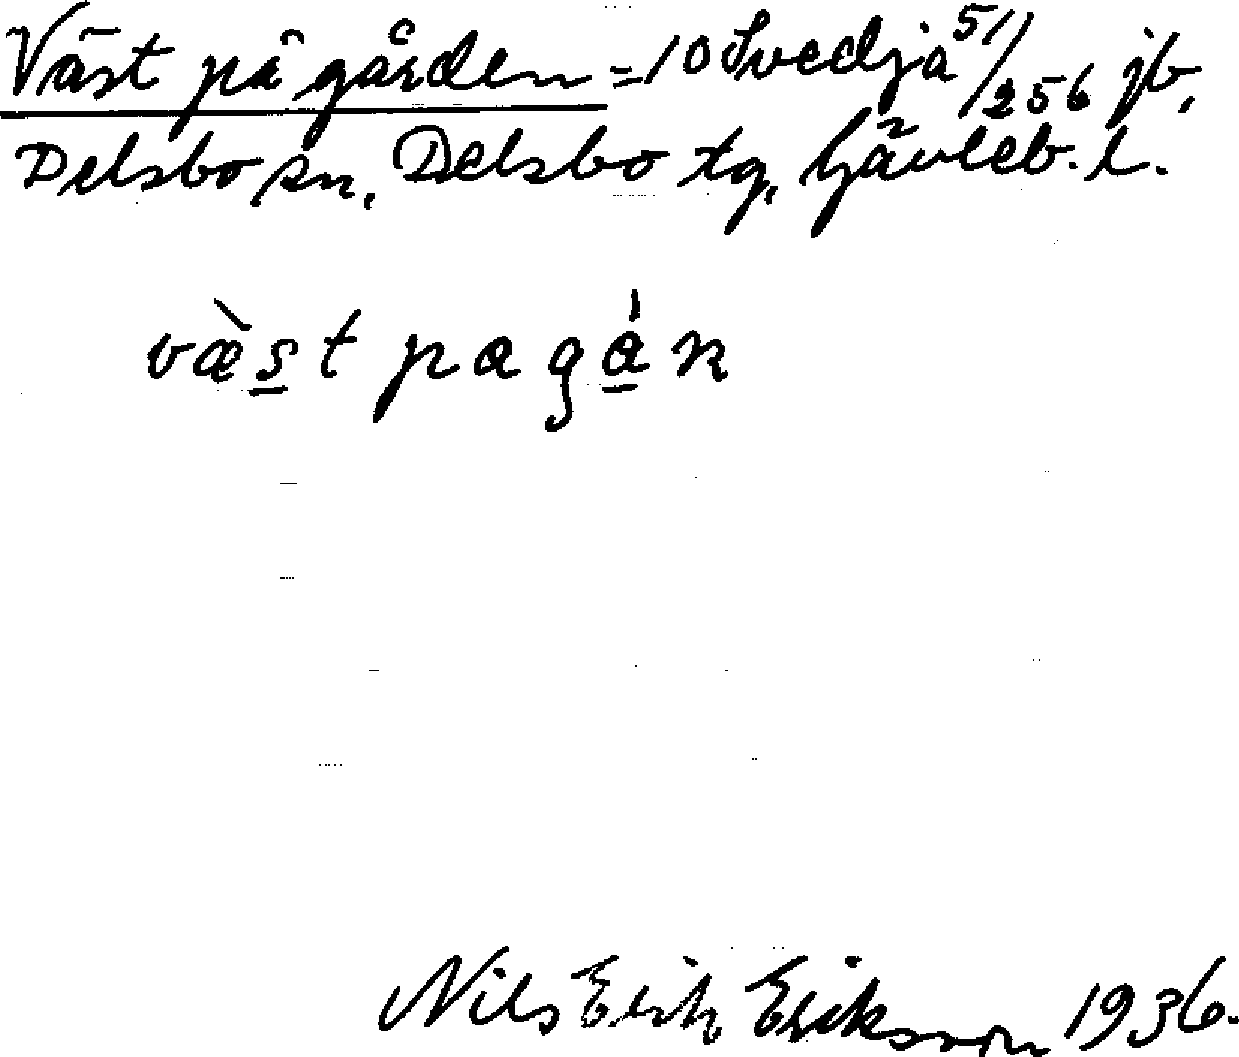 Väst på gården = 10 Svedja 51/256 jb,
Delsbo sn, Delsbo tg, Gävleb. l.
væ̀st pagán
Nils Erik Eriksson 1936.